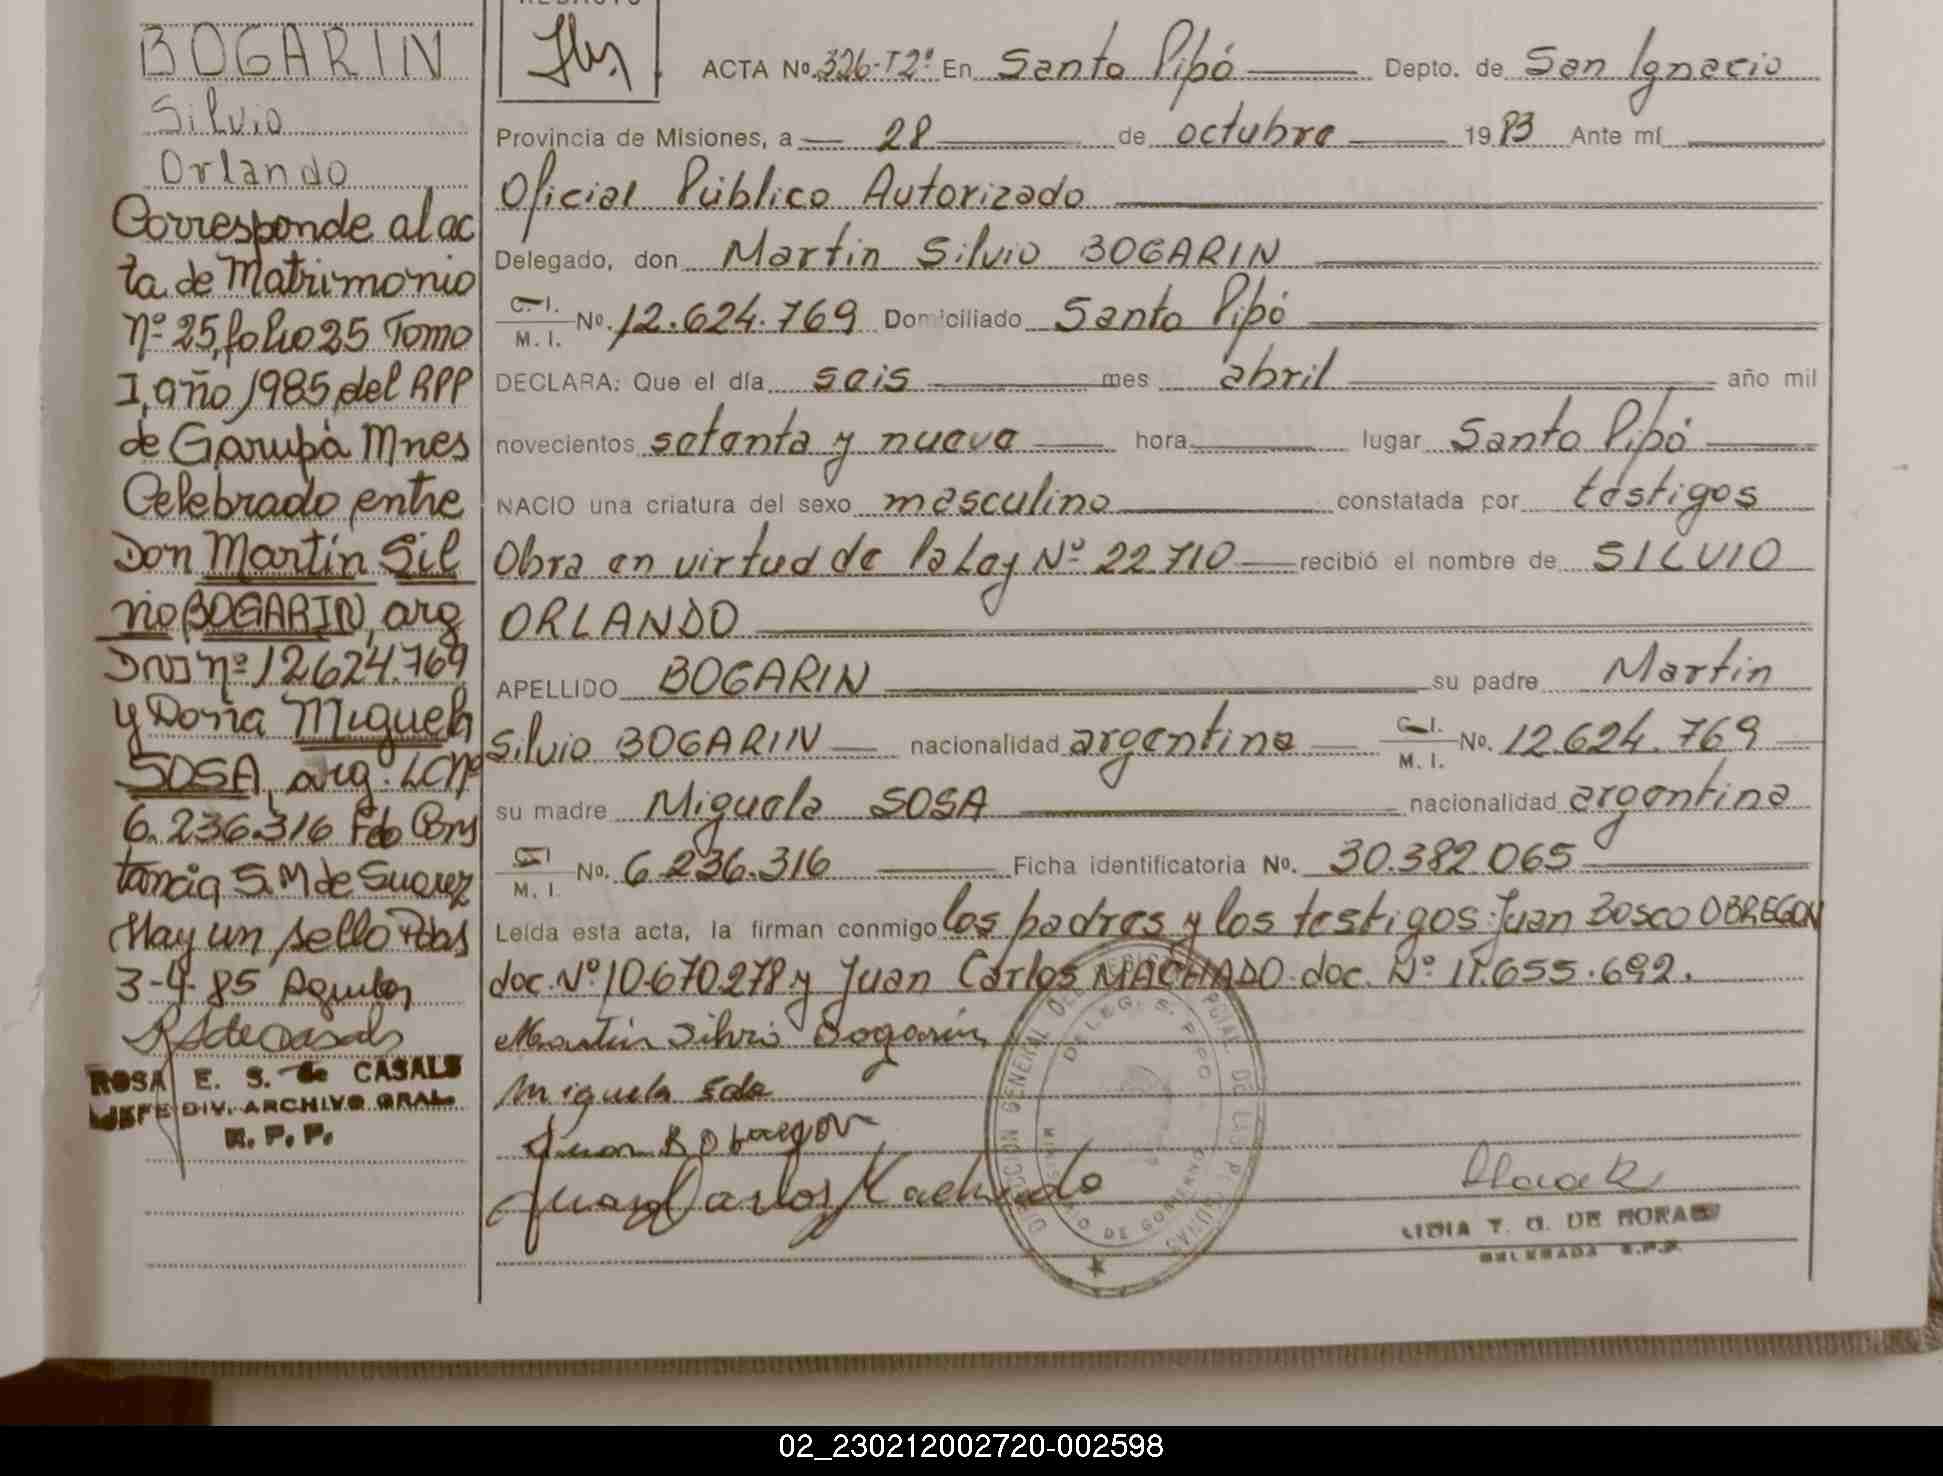 BOGARIN
Silvio
Orlando
Corresponde al ac
ta de Matrimonio
nº 25, folio 25 Tomo
I, año 1985, del RPP
de Garupá Mnes
Celebrado entre
Don Martín Sil
vio BOGARIN, arg
DNI nº 12624.769
y Doña Miguela
SOSA, arg. LC nº
6.236.316 Fdo Cons
tancia S.M de Suarez
Hay un sello Pdas
3-4-85
ROSA E. S. de CASALS
JEFE DIV. ARCHIVO GRAL.
R. P. P.
REDACTO
ACTA No. 326-T2º En Santo Pipó Depto. de San Ignacio
Provincia de Misiones, a 28 de octubre 1983 Ante mí
Oficial Público Autorizado
Delegado, don Martin Silvio BOGARIN
C. I. M. I. No. 12.624.769 Domiciliado Santo Pipó
DECLARA: Que el día seis mes abril año mil
novecientos setenta y nueve hora lugar Santo Pipó
NACIO una criatura del sexo masculino constatada por testigos
Obra en virtud de la Ley Nº 22.710 recibió el nombre de SILVIO
ORLANDO
APELLIDO BOGARIN su padre Martin
Silvio BOGARIN nacionalidad argentina C. I. M. I. No. 12.624.769
su madre Miguela SOSA nacionalidad argentina
C. I. M. I. No. 6.236.316 Ficha identificatoria No. 30.382.065
Leída esta acta, la firman conmigo los padres y los testigos: Juan Bosco OBREGON
doc. Nº 10.670.278 y Juan Carlos MACHADO doc. Nº 11.655.692.
Martin Silvio Bogarin
Miguela Sosa
Juan B Obregon
Juan Carlos Machado
DIRECCION GENERAL DE LAS PERSONAS
DELEG. S. PIPO
MINISTERIO DE GOBIERNO
LIDIA T. G. DE MORAES
DELEGADA R.P.P.
02_230212002720-002598